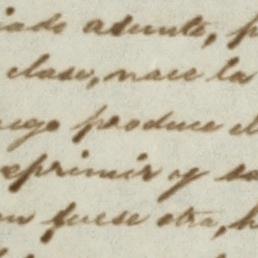 iado asunto, p
clase, nace la
uego produce el
eprimir y sa
on fuese otra, h